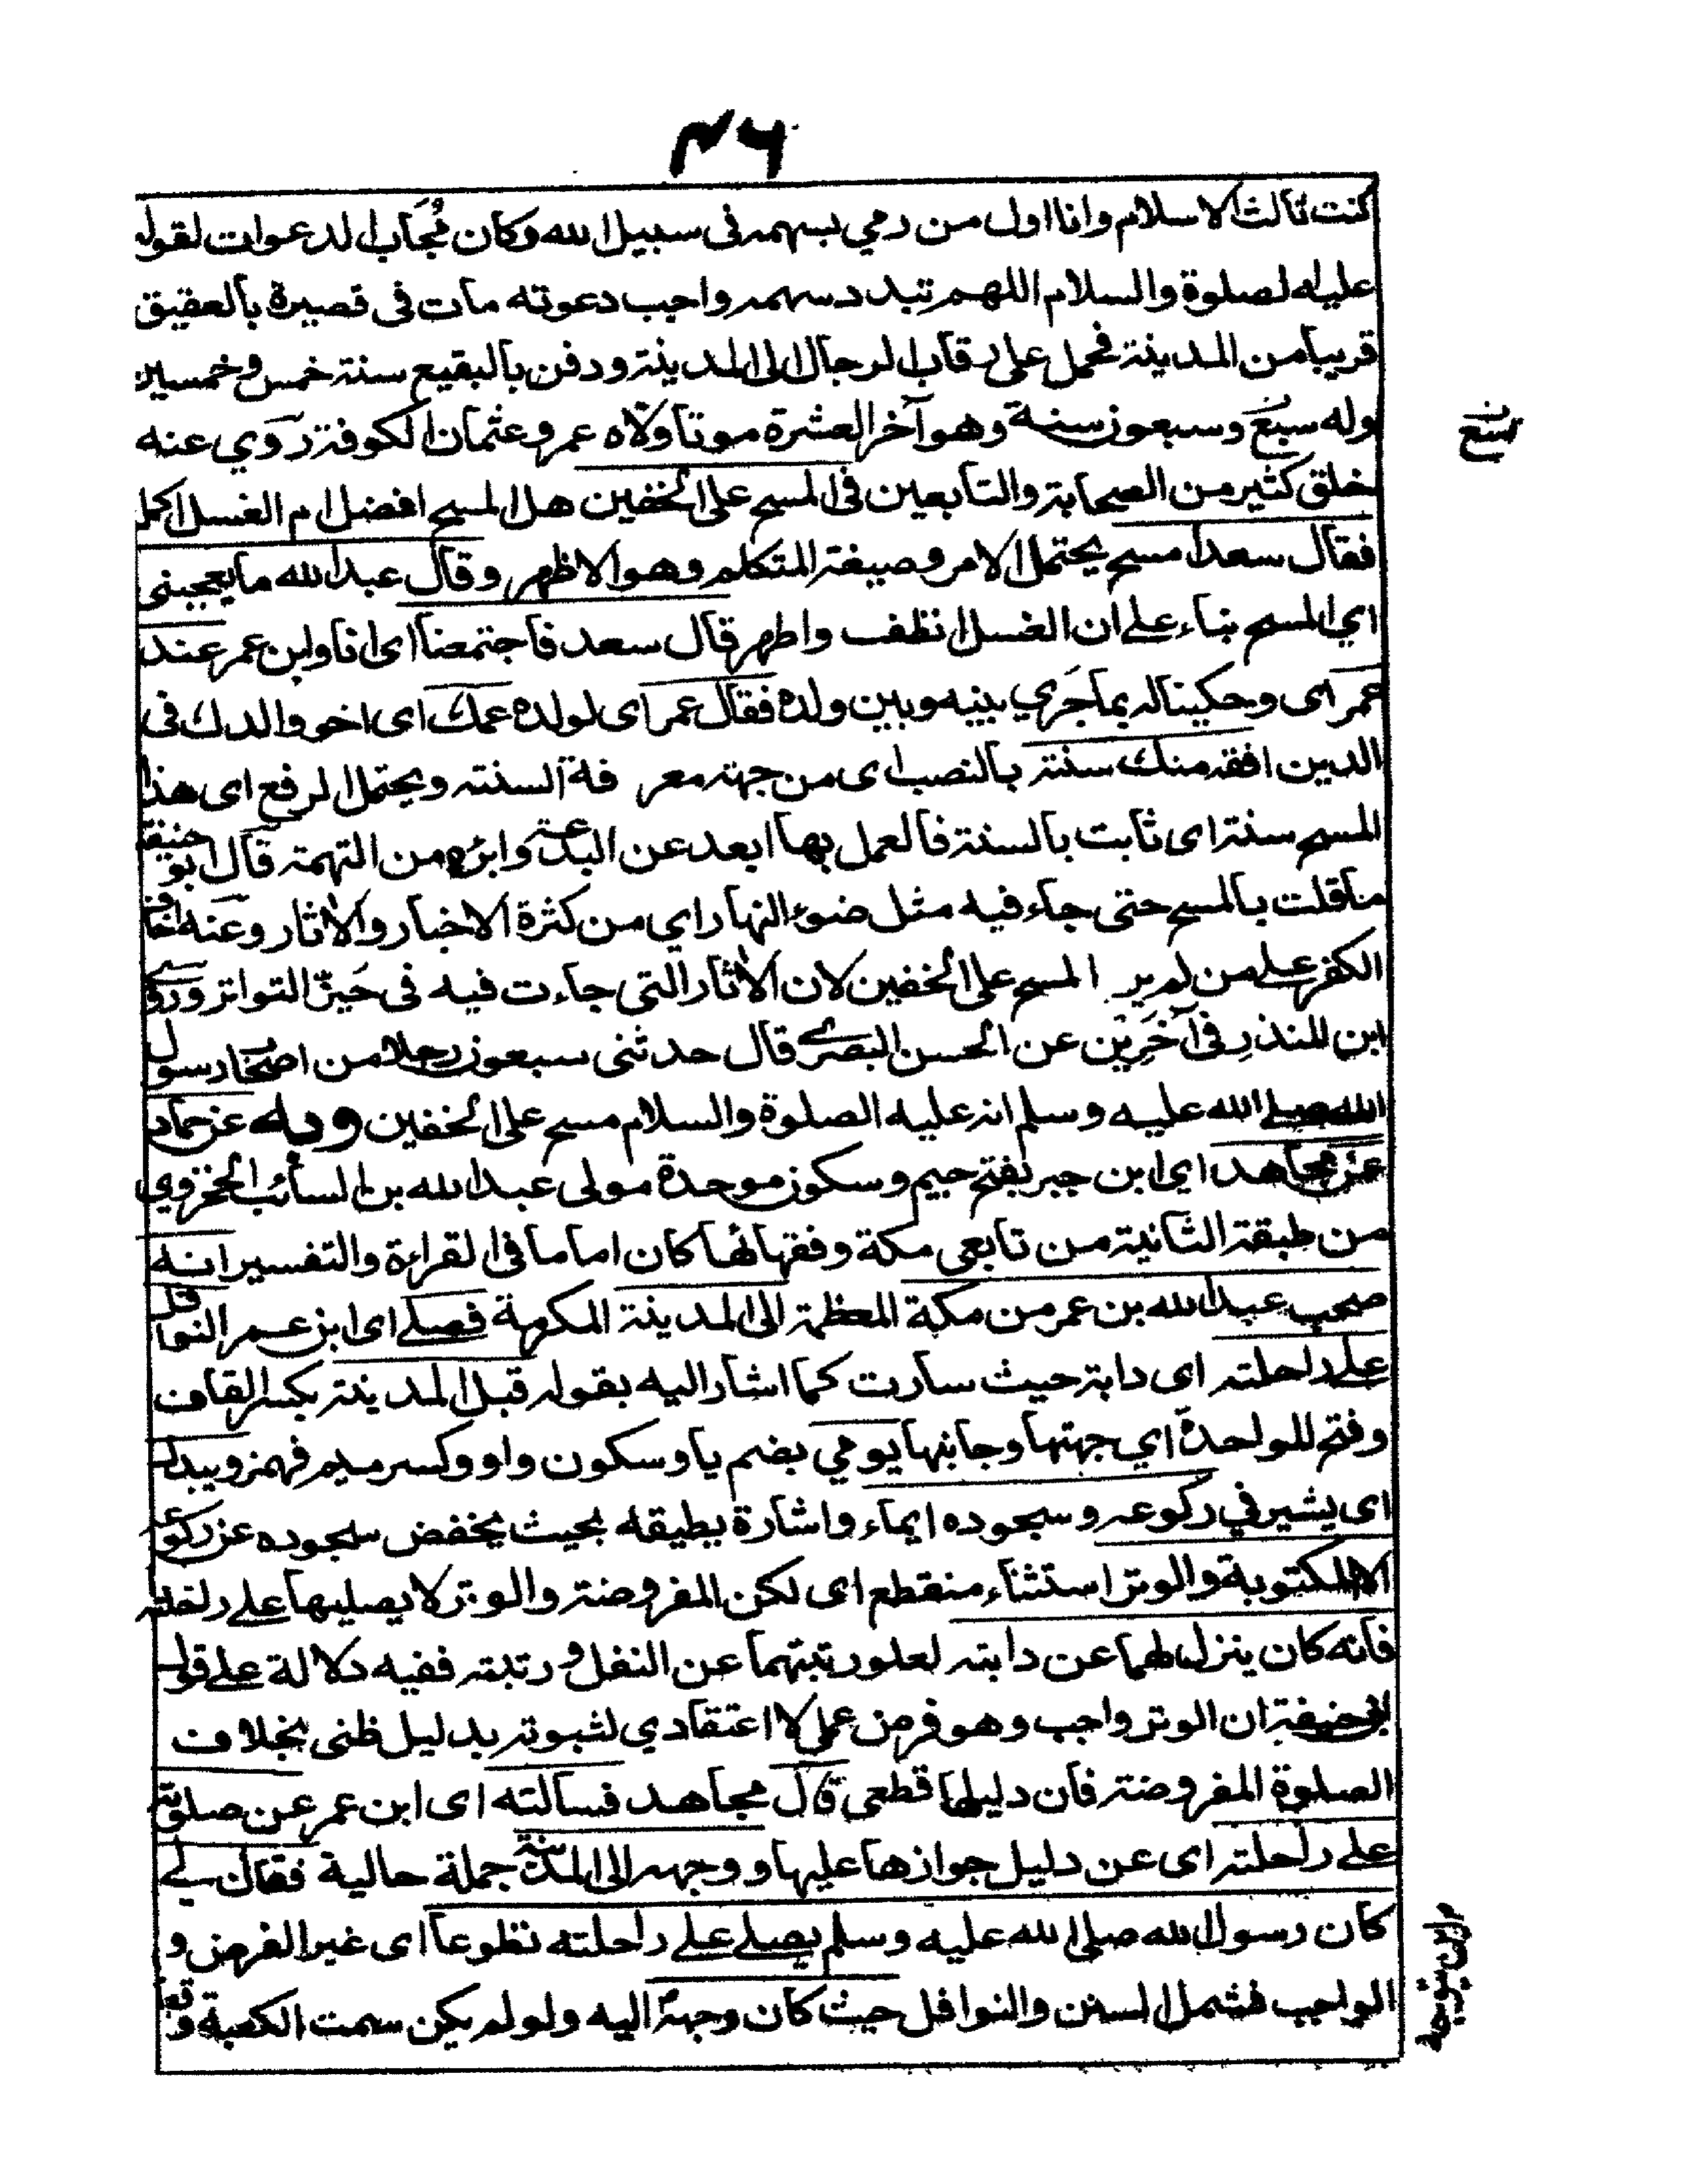 ٤٦
كنت ثالث الاسلام وانا اول من رمي بسهم فى سبيل الله وكان مُجَاب الدعوات لقوله
عليه الصلوة والسلام اللهم تبدد سهمه واجب دعوته مات فى قصيرة بالعقيق
قريبا من المدينة فحمل على رقاب الرجال الى المدينة ودفن بالبقيع سنة خمس وخمسين
وله سبع وسبعون سنة وهو آخر العشرة موتا ولاه عمر وعثمان الكوفة روي عنه
تسع
خلق كثير من الصحابة والتابعين فى المسح على الخفين هل المسح افضل ام الغسل اكمل
فقال سعد امسح يحتمل الامر وصيغة المتكلم وهو الاظهر وقال عبد الله ما يعجبنى
اي المسح بناء على ان الغسل انظف واطهر قال سعد فاجتمعنا اى انا وابن عمر عند
عمر اى وحكينا له بما جَرَي بينه وبين ولده فقال عمر اى لولده عمك اى اخو والدك فى
الدين افقه منك سنة بالنصب اى من جهة معر فة السنة ويحتمل الرفع اى هذا
المسح سنة اى ثابت بالسنة فالعمل بها ابعد عن البدعة وابرء من التهمة قال ابو حنيفة
ما قلت بالمسح حتى جاء فيه مثل ضوء النهار اي من كثرة الاخبار والاثار وعنه اخاف
الكفر على من لم ير المسح على الخفين لان الاثار التى جاءت فيه فى حَيّز التواتر وروى
ابن المنذر فى آخَرِين عن الحسن البصرى قال حدثنى سبعون رجلا من اصحاب رسول
الله صلى الله عليه وسلم انه عليه الصلوة والسلام مسح على الخفين وبه عن حماد
عن مجاهد اي ابن جبر بفتح جيم وسكون موحدة مولى عبد الله بن السائب المخزومي
من طبقة الثانية من تابعى مكة وفقهائها كان اماما فى القراءة والتفسير انه
صحب عبد الله بن عمر من مكة المعظمة الى المدينة المكرمة فصلى اى ابن عمر النوافل
على راحلته اى دابة حيث سارت كما اشار اليه بقوله قبل المدينة بكسر القاف
وفتح للواحدة اي جهتها وجانبها يومي بضم ياء وسكون واو وكسر ميم فهمز ويبدل
اى يشير في ركوعه وسجوده ايماء واشارة يطيقه بحيث يخفض سجوده عن ركوعه
الا المكتوبة والوتر استثناء منقطع اى لكن المفروضة والوتر لا يصليها على راحلته
فانه كان ينزل لهما عن دابته لعلو رتبتهما عن النفل ورتبته ففيه دلالة على قول
ابى حنيفة ان الوتر واجب وهو فرض عملى لا اعتقادي لثبوته بدليل ظنى بخلاف
الصلوة المفروضة فان دليلها قطعى قال مجاهد فسالته اى ابن عمر عن صلوته
على راحلته اى عن دليل جوازها عليها ووجهه الى المدينة جملة حالية فقال لى
كان رسول الله صلى الله عليه وسلم يصلى على راحلته تطوعا اى غير الفرض و
الواجب فشمل السنن والنوافل حيث كان وجهه اليه ولو لم يكن سمت الكعبة وقع